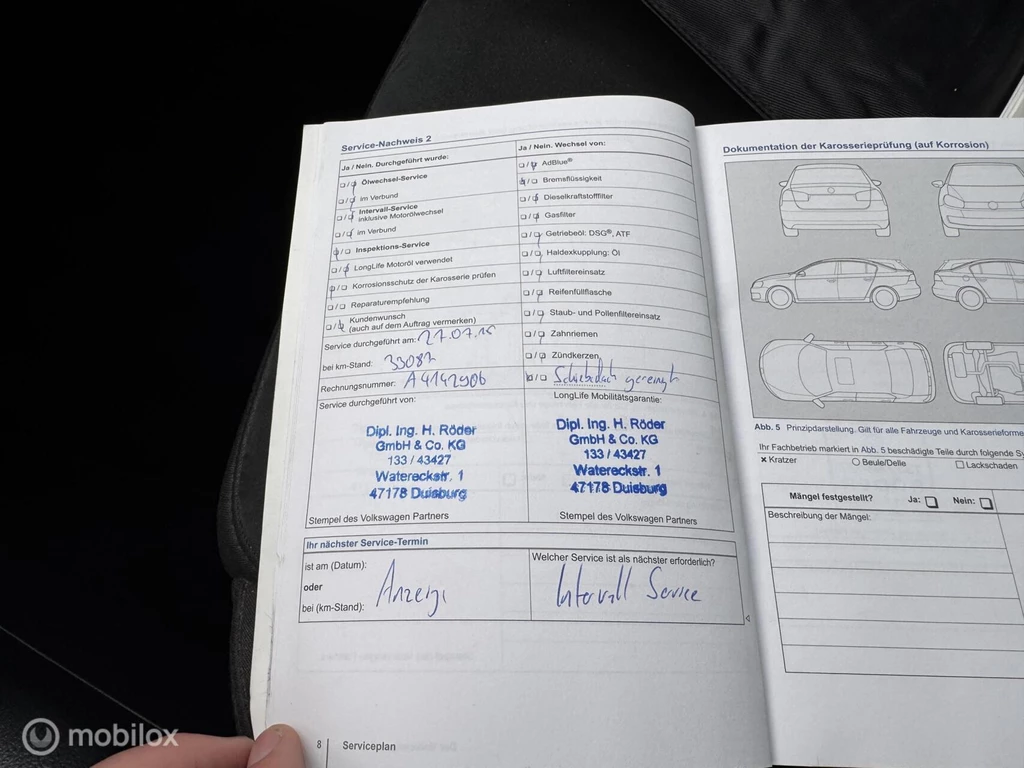 Service-Nachweis 2
Ja / Nein. Durchgeführt wurde:
Ölwechsel-Service
im Verbund
Intervall-Service
inklusive Motorölwechsel
im Verbund
Inspektions-Service
LongLife Motoröl verwendet
Korrosionsschutz der Karosserie prüfen
Reparaturempfehlung
Kundenwunsch
(auch auf dem Auftrag vermerken)
Service durchgeführt am:
bei km-Stand: 33082
Rechnungsnummer: A4142906
Service durchgeführt von:
Dipl. Ing. H. Röder
GmbH & Co. KG
133 / 43427
Watereckstr. 1
47178 Duisburg
Stempel des Volkswagen Partners
Ja / Nein. Wechsel von:
AdBlue®
Bremsflüssigkeit
Dieselkraftstofffilter
Gasfilter
Getriebeöl: DSG®, ATF
Haldexkupplung: Öl
Luftfiltereinsatz
Reifenfüllflasche
Staub- und Pollenfiltereinsatz
Zahnriemen
Zündkerzen
Schiebedach gereinigt
LongLife Mobilitätsgarantie:
Dipl. Ing. H. Röder
GmbH & Co. KG
133 / 43427
Watereckstr. 1
47178 Duisburg
Stempel des Volkswagen Partners
Ihr nächster Service-Termin
ist am (Datum):
oder
bei (km-Stand):
Anzeige
Welcher Service ist als nächster erforderlich?
Intervall Service
8 Serviceplan
Dokumentation der Karosserieprüfung (auf Korrosion)
Abb. 5 Prinzipdarstellung. Gilt für alle Fahrzeuge und Karosserieforme
Ihr Fachbetrieb markiert in Abb. 5 beschädigte Teile durch folgende Sy
x Kratzer
Beule/Delle
Lackschaden
Mängel festgestellt? Ja: Nein:
Beschreibung der Mängel:
mobilox